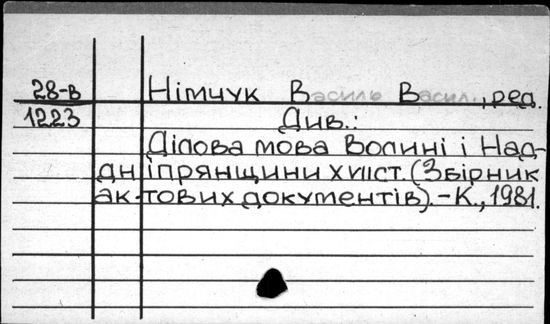 28-в Німчук Василь Васил., ред.
1223 Див.:
Ділова мова Волині і Над-
дніпрянщини XVII ст. (Збірник
ак-тових документів). – К., 1981.